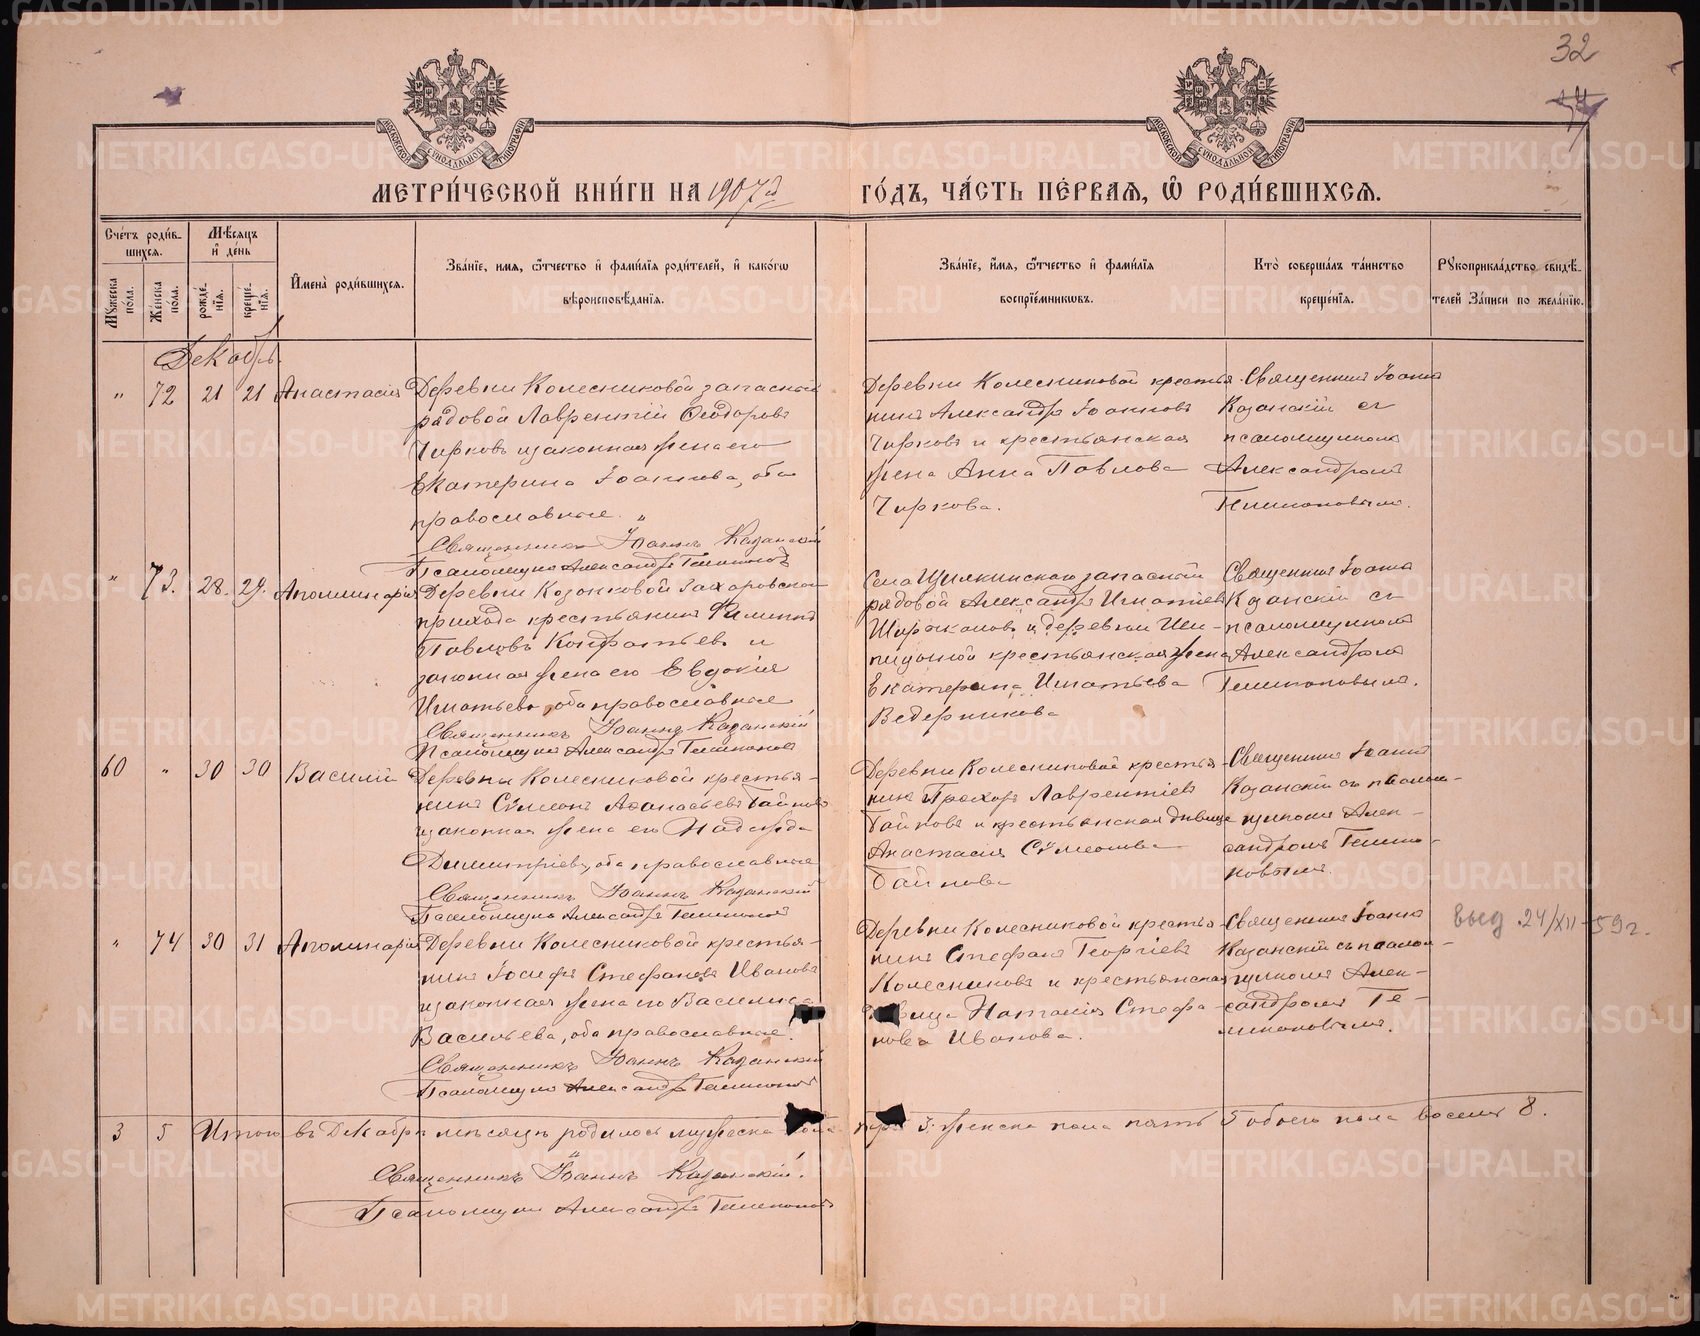 32
МОСКОВСКОЙ СѴНОДАЛЬНОЙ ТИПОГРАФІИ
МОСКОВСКОЙ СѴНОДАЛЬНОЙ ТИПОГРАФІИ
МЕТРИ́ЧЕСКОЙ КНИ́ГИ НА 1907й ГО́ДЪ, ЧА́СТЬ ПЕ́РВАЯ, Ѽ РОДИ́ВШИХСЯ.
Сче́тъ роди́в-
шихся.
Мѣ́сяцъ
и҆ де́нь
Мꙋ́жеска
по́ла.
Же́нска
по́ла.
рожде́-
нїя.
креще́-
нїя.
И҆мена̀ роди́вшихся.
Зва́нїе, имя, ѻ҆́тчество и҆ фами́лїя роди́телей, и҆ како́гѡ
вѣроисповѣ́данїя.
Зва́нїе, и҆́мя, ѻ҆́тчество и҆ фами́лїя
воспрїе́мникѡвъ.
Кто̀ соверша́лъ та́инство
креще́нїя.
Рꙋкоприкла́дство свидѣ́-
телей за́писи по жела́нїю.
Декабрь.
" 72 21 21 Анастасія
Деревни Колесниковой запасный
рядовой Лаврентій Ѳеодоровъ
Чирковъ и законная жена его
Екатерина Іоаннова, оба
православные.
Священникъ Іоаннъ Казанскій
Псаломщикъ Александръ
Деревни Колесниковой крестья-
нинъ Александръ Іоанновъ
Чирковъ и крестьянская
жена Анна Павлова
Чиркова.
Священникъ Іоаннъ
Казанскій съ
псаломщикомъ
Александромъ
" 73. 28. 29. Аполлинарія
Деревни Захаровской
прихода крестьянинъ Филиппъ
Павловъ Кондратьевъ и
законная жена его Евдокія
Игнатьева, оба православные
Священникъ Іоаннъ Казанскій
Псаломщикъ Александръ
Села запасный
рядовой Александръ Игнатіевъ
и деревни
крестьянская жена
Екатерина Игнатьева
Ведерникова
Священникъ Іоаннъ
Казанскій съ
псаломщикомъ
Александромъ
60 " 30 30 Василій
Деревни Колесниковой крестья-
нинъ Сѵмеонъ Аѳанасьевъ Байновъ
и законная жена его Надежда
Димитріева, оба православные
Священникъ Іоаннъ Казанскій
Псаломщикъ Александръ
Деревни Колесниковой крестья-
нинъ Прохоръ Лаврентіевъ
Байновъ и крестьянская дѣвица
Анастасія Сѵмеонова
Байнова
Священникъ Іоаннъ
Казанскій съ псалом-
щикомъ Алек-
сандромъ
" 74 30 31 Аполинарія
Деревни Колесниковой крестья-
нинъ Іосифъ Стефановъ Ивановъ
и законная жена его Василиса
Васильева, оба православные.
Священникъ Іоаннъ Казанскій
Псаломщикъ Александръ
Деревни Колесниковой крестья-
нинъ Стефанъ Георгіевъ
Колесниковъ и крестьянская
дѣвица Наталія Стефа-
нова Иванова.
Священникъ Іоаннъ
Казанскій съ псалом-
щикомъ Алек-
сандромъ
выд. 24/XII-59 г.
3 5 Итого въ Декабрѣ мѣсяцѣ родилось мужеска пола три 3. женска пола пять 5 обоего пола восемь 8.
Священникъ Іоаннъ Казанскій.
Псаломщикъ Александръ
METRIKI.GASO-URAL.RU